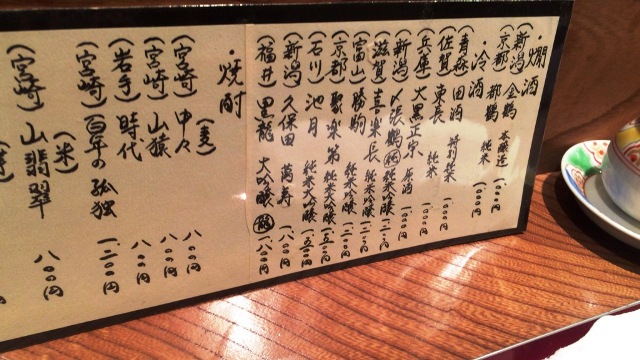 ・燗酒
(新潟) 金鶴 本醸造 一、〇〇〇円
(京都) 都鶴 純米 一、〇〇〇円
冷酒
(青森) 田酒 特別純米 一、〇〇〇円
(佐賀) 東長 純米 一、〇〇〇円
(兵庫) 大黒正宗 原酒 一、〇〇〇円
(新潟) 〆張鶴 純 純米吟醸 一、〇〇〇円
(滋賀) 喜楽長 純米吟醸 一、二〇〇円
(富山) 勝駒 純米吟醸 一、二〇〇円
(京都) 聚楽第 純米大吟醸 一、五〇〇円
(石川) 池月 純米大吟醸 一、五〇〇円
(新潟) 久保田 萬寿 一、八〇〇円
(福井) 黒龍 大吟醸 一、八〇〇円
・焼酎
(麦)
(宮崎) 中々 八〇〇円
(宮崎) 山猿 八〇〇円
(岩手) 時代 八〇〇円
(宮崎) 百年の孤独 一、二〇〇円
(米)
(宮崎) 山翡翠 八〇〇円